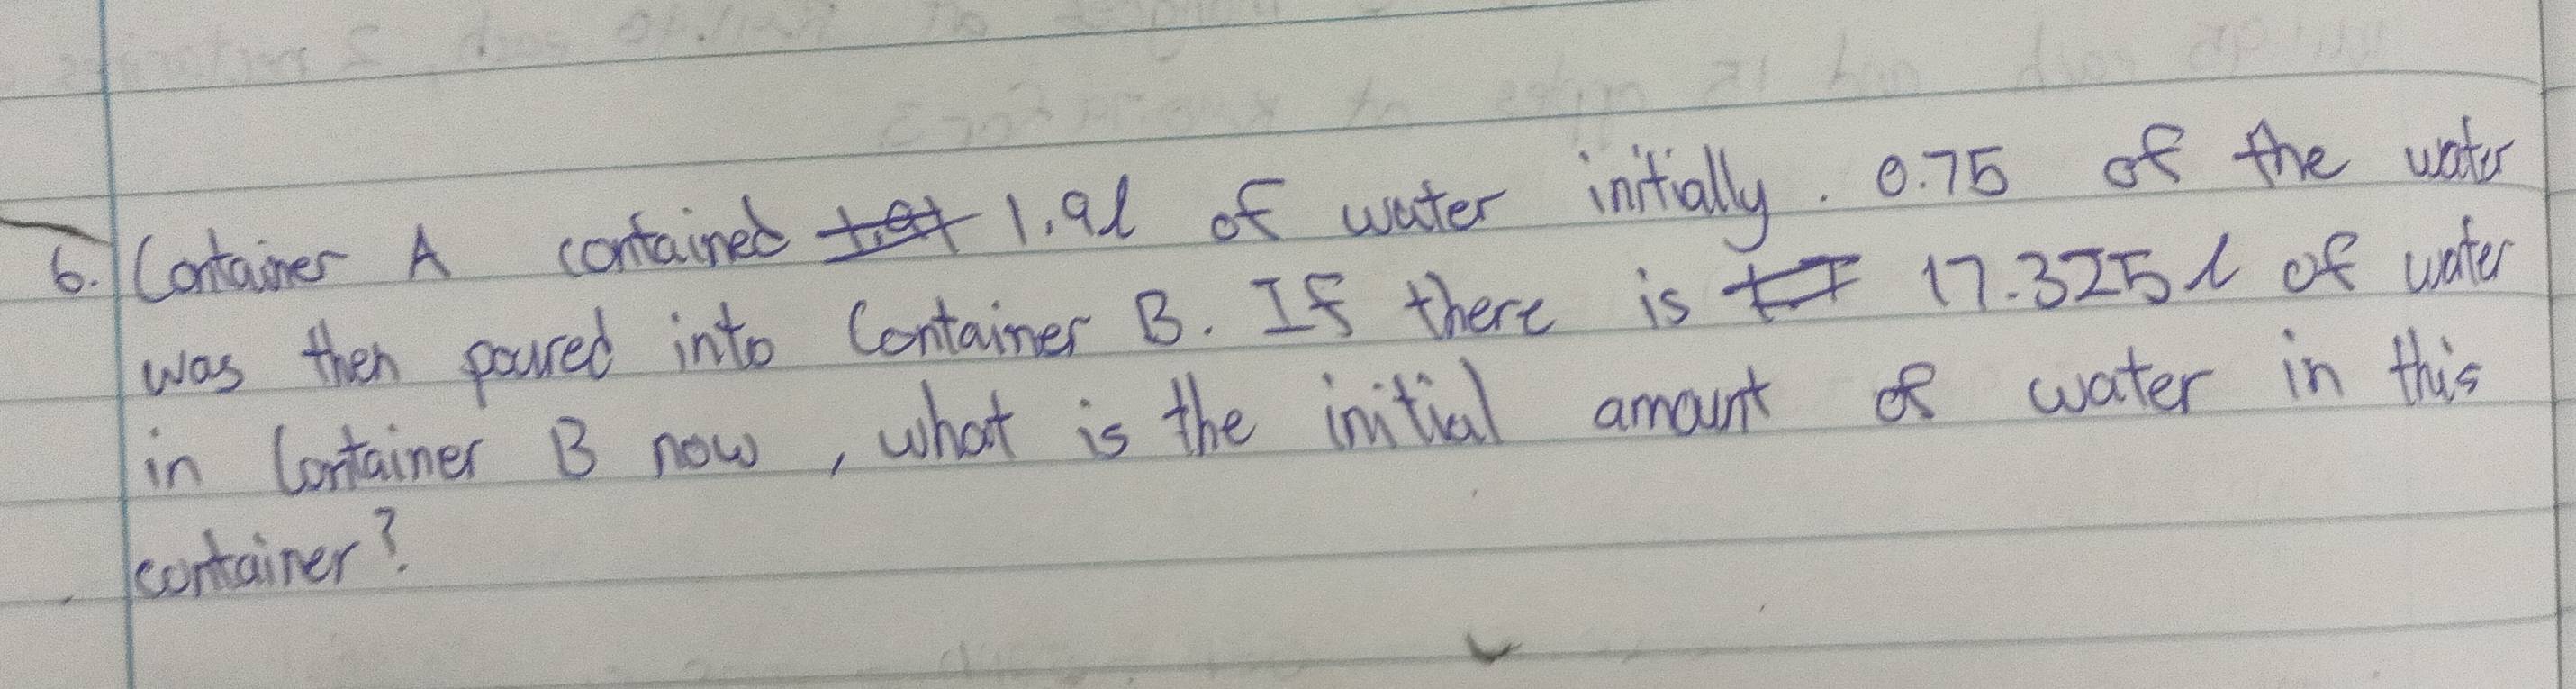 6. Container A contained 1.9l of water initially. 0.75 of the water
was then poured into Container B. If there is 17.325l of water
in Container B now, what is the initial amount of water in this
container?